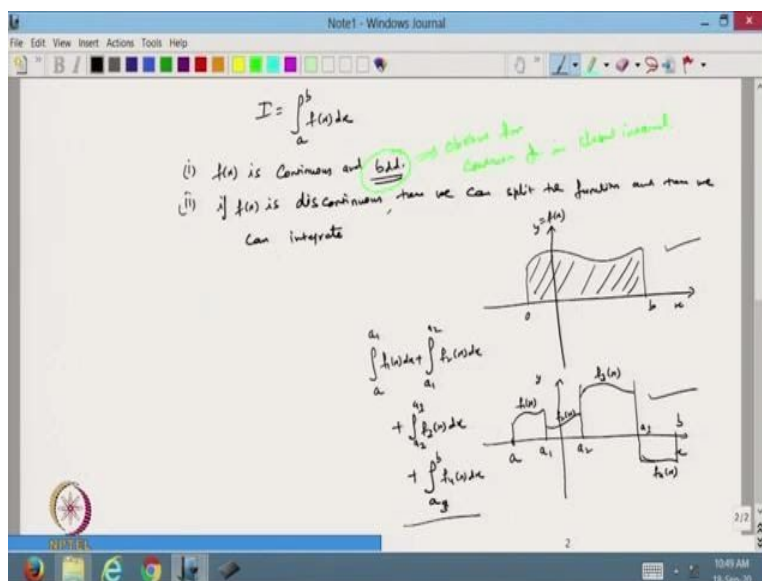 Note1 - Windows Journal
File Edit View Insert Actions Tools Help
B I
I = ∫_a^b f(x) dx
(i) f(x) is continuous and bdd. ⇒ obvious for
continuous fn in closed interval
(ii) if f(x) is discontinuous, then we can split the function and then we
can integrate
y=f(x)
b x
∫_a^{a1} f1(x) dx + ∫_{a1}^{a2} f2(x) dx
+ ∫_{a2}^{a3} f3(x) dx
+ ∫_{a3}^b f4(x) dx
y
f1(x) f2(x) f3(x)
a a1 a2 a3 b
x
f4(x)
NPTEL
2
2/2
10:49 AM